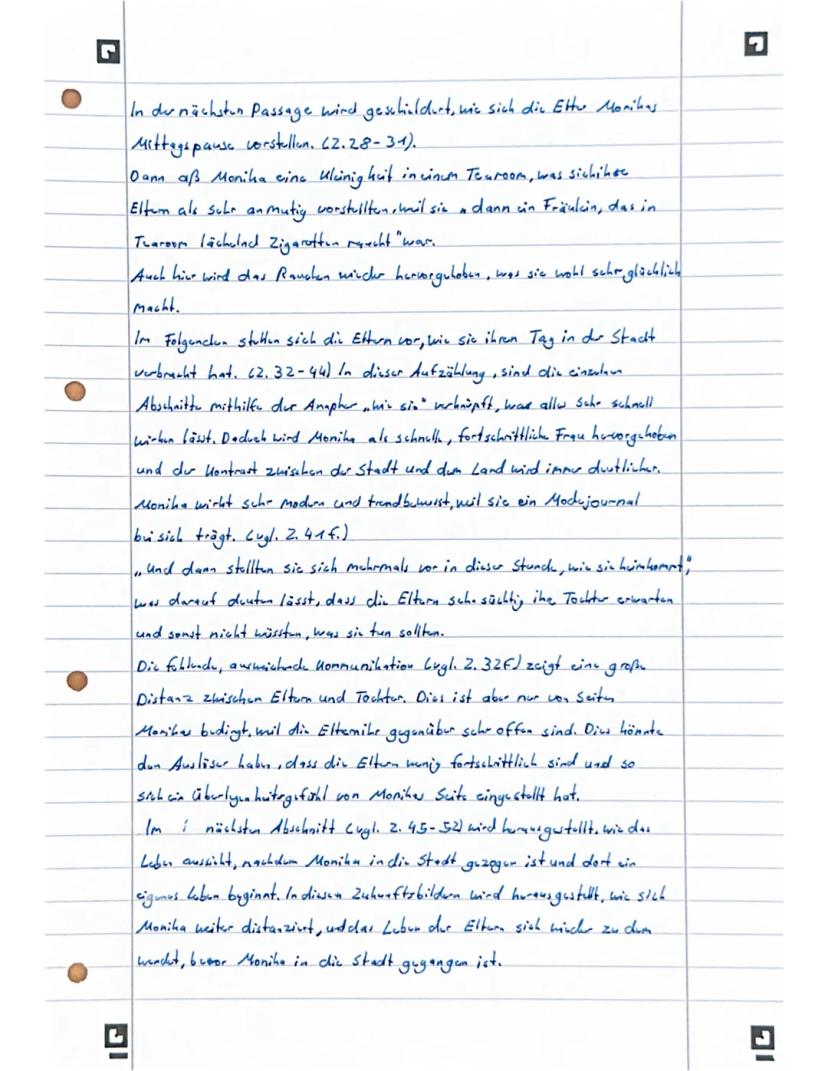 In der nächsten Passage wird geschildert, wie sich die Elter Monikas
Mittagspause vorstellen. (Z.28-31).
Dann aß Monika eine Kleinigkeit in einem Tearoom, was sich ihre
Eltern als sehr anmutig vorstellten, weil sie „dann ein Fräulein, das in
Tearoom lächelnd Zigaretten raucht" war.
Auch hier wird das Rauchen wieder hervorgehoben, was sie wohl sehr glücklich
macht.
Im Folgenden stellen sich die Eltern vor, wie sie ihren Tag in der Stadt
verbracht hat. (Z. 32-44) In dieser Aufzählung, sind die einzelnen
Abschnitte mithilfe der Anapher „wie sie" verknüpft, was alles sehr schnell
wirken lässt. Dadurch wird Monika als schnelle, fortschrittliche Frau hervorgehoben
und der Kontrast zwischen der Stadt und dem Land wird immer deutlicher.
Monika wirkt sehr modern und trendbewusst, weil sie ein Modejournal
bei sich trägt. (vgl. Z. 41f.)
„Und dann stellten sie sich mehrmals vor in dieser Stunde, wie sie heimkommt",
was darauf deuten lässt, dass die Eltern sehnsüchtig ihre Tochter erwarten
und sonst nicht wüssten, was sie tun sollten.
Die fehlende, ausweichende Kommunikation (vgl. Z. 32f.) zeigt eine große
Distanz zwischen Eltern und Tochter. Dies ist aber nur von Seiten
Monikas bedingt, weil die Eltern ihr gegenüber sehr offen sind. Dies könnte
den Auslöser haben, dass die Eltern wenig fortschrittlich sind und so
sich ein Überlegenheitsgefühl von Monikas Seite eingestellt hat.
Im nächsten Abschnitt (vgl. Z. 45-52) wird herausgestellt, wie das
Leben aussieht, nachdem Monika in die Stadt gezogen ist und dort ein
eigenes Leben beginnt. In diesen Zukunftsbildern wird herausgestellt, wie sich
Monika weiter distanziert, und das Leben der Eltern sich wieder zu dem
wendet, bevor Monika in die Stadt gegangen ist.